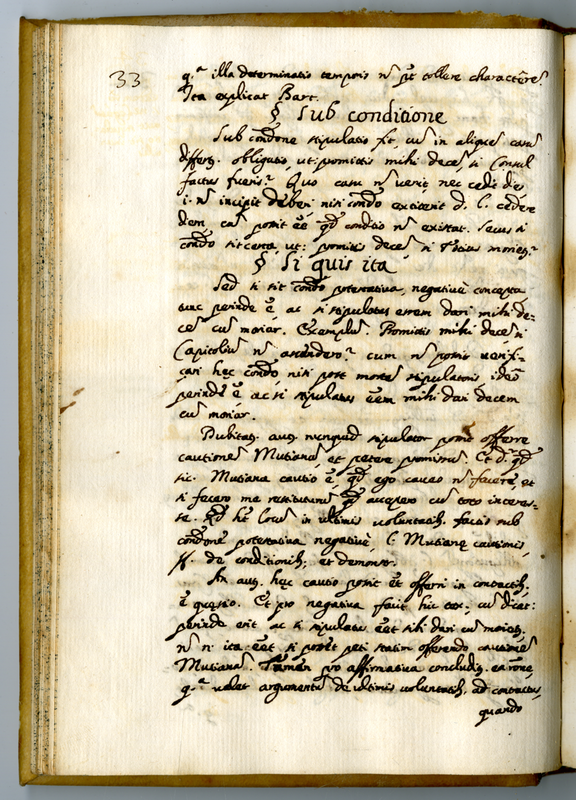 33
q.ª illa determinatio temporis nō pōt tollere characterē.
Ita explicat Bart.
§ Sub conditione
Sub condōne stipulatio fit, cū in aliquē casū
differtʒ. obligatio, ut: promittis mihi decē, si Consul
factus fueris? Quo casu nō venit, nec cedit dies
i. nō incipit deberi nisi condo extiterit d. l. cedere
diem, cū possit eē qđ conditio nō existat. Secus si
condo sit certa, ut: promittis decē si Titius moriet.ʳ
§ Si quis ita
Sed si sit condo potestativa, negativè concepta
tunc perinde ē, ac si stipulatus essem dari mihi de-
cē cū moriar. Exemplū. Promittis mihi decē si
Capitoliū nō ascendero? cum nō possit verifi-
cari hęc condo nisi post mortē stipulatoris ideò
perinde ē ac si stipulatus eēm mihi dari decem
cū moriar.
Dubitatʒ. autē nunquid stipulator possit offerre
cautionē Mutianā, et petere promissū. Et dʳ qđ
sic. Mutiana cautio ē, qđ ego caveo nō facere, et
si facero me restituturū qđ accepero cū toto interes-
se. Qđ hēt locū in ultimis voluntatib. factis sub
condōne potestativa negativè, l. Mutianę cautionis,
ff. de conditionib. et demonstr.
An autē hęc cautio possit ēt offerri in contractib.
ē questio. Et pro negativa facit hic tex: cū dicat:
perinde erit ac si stipulatus eēt sibi dari cū morietʒ.
nō .n. ita eēt si posset peti statim offerendo cautionē
Mutianā. Tamen pro affirmativa concluditʒ. ea rōne,
q.ª valet argumentū de ultimis voluntatib. ad contractus,
quando